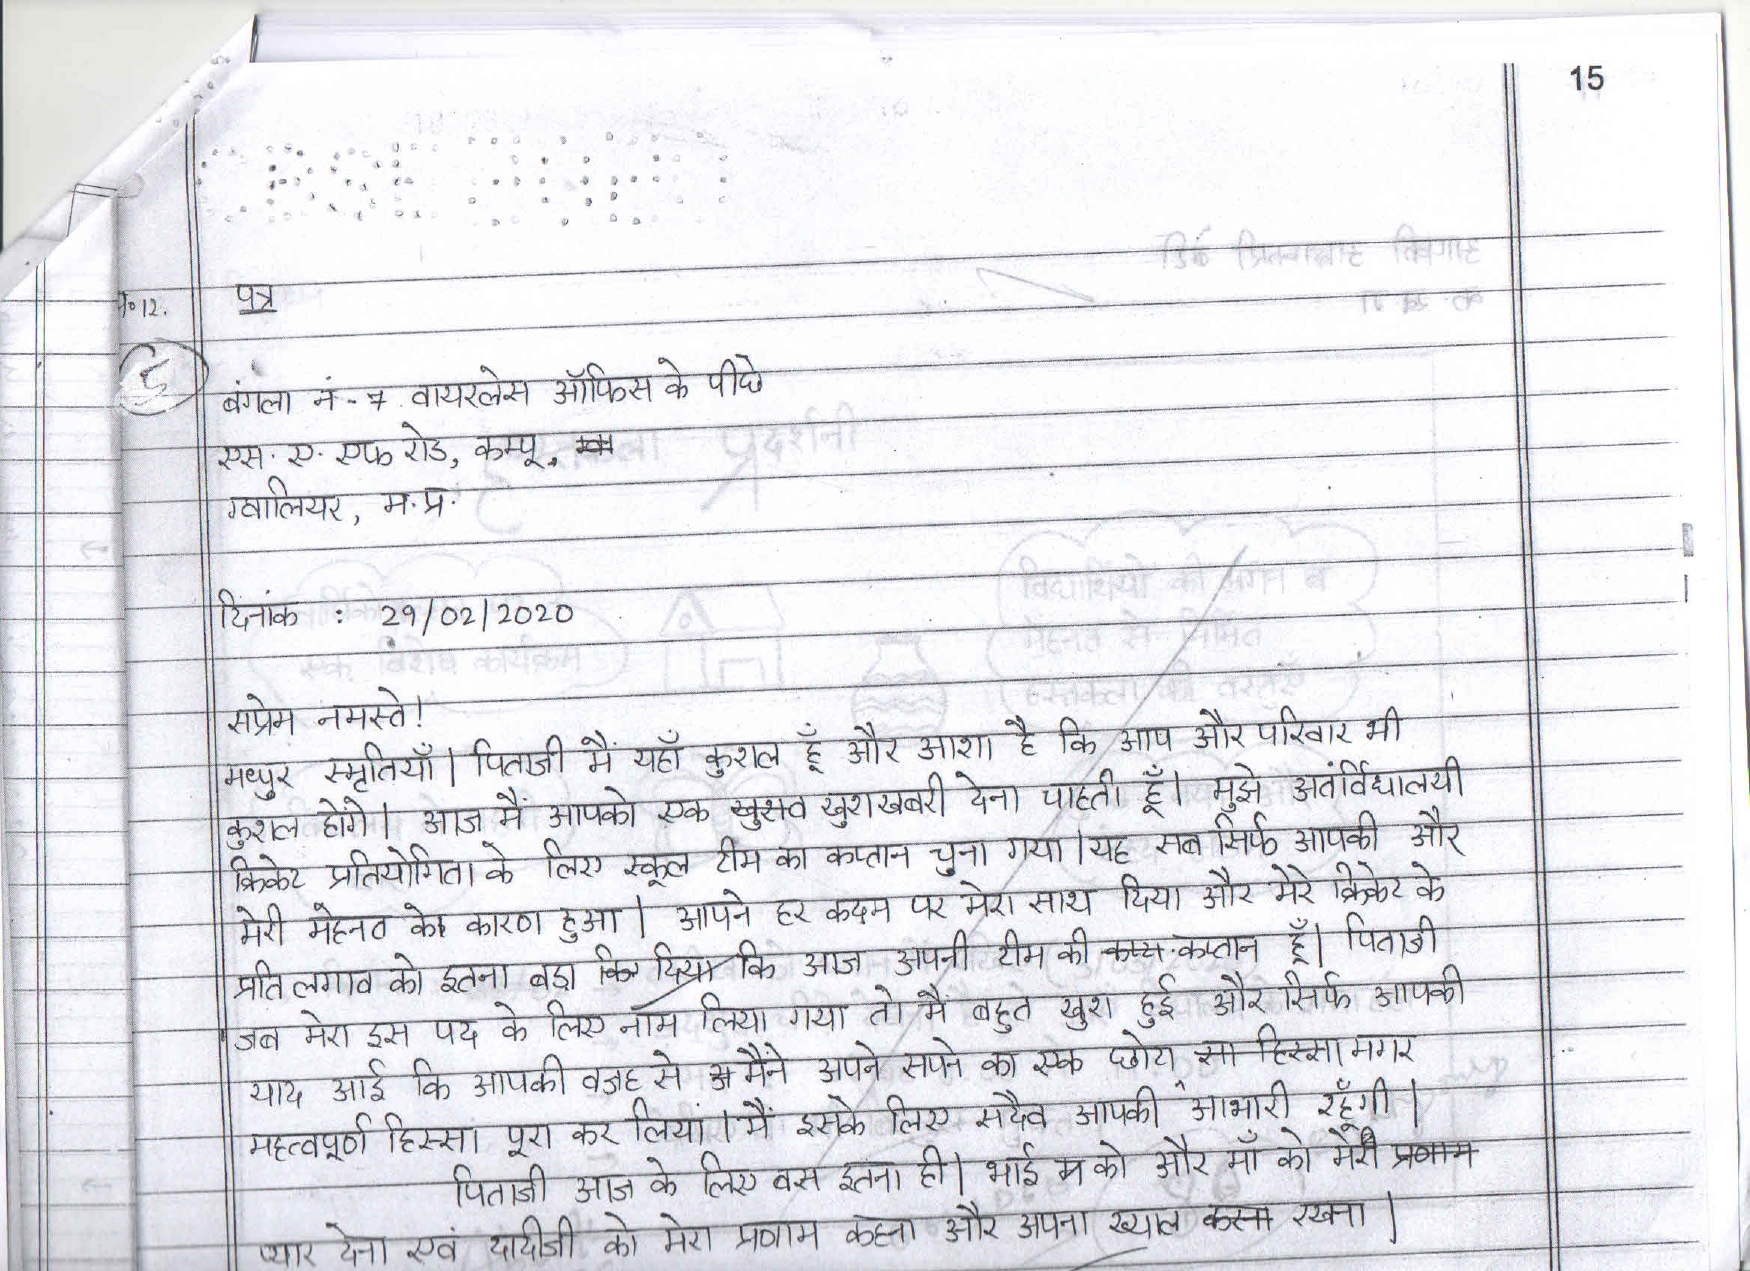 15
पत्र
बंगला नं - 7 वायरलेस ऑफिस के पीछे
एस. ए. एफ रोड, कम्पू,
ग्वालियर, म.प्र.
दिनांक : 29/02/2020
सप्रेम नमस्ते!
मधुर स्मृतियाँ। पिताजी मैं यहाँ कुशल हूँ और आशा है कि आप और परिवार भी
कुशल होंगे। आज मैं आपको एक खुशखबरी देना चाहती हूँ। मुझे अतंर्विद्यालयी
क्रिकेट प्रतियोगिता के लिए स्कूल टीम का कप्तान चुना गया। यह सब सिर्फ आपकी और
मेरी मेहनत के कारण हुआ। आपने हर कदम पर मेरा साथ दिया और मेरे क्रिकेट के
प्रति लगाव को इतना बड़ा कर दिया कि आज अपनी टीम की कप्तान हूँ। पिताजी
जब मेरा इस पद के लिए नाम लिया गया तो मैं बहुत खुश हुई और सिर्फ आपकी
याद आई कि आपकी वजह से मैंने अपने सपने का एक छोटा सा हिस्सा मगर
महत्वपूर्ण हिस्सा पूरा कर लिया। मैं इसके लिए सदैव आपकी आभारी रहूँगी।
पिताजी आज के लिए बस इतना ही। भाई को और माँ को मेरी प्रणाम
प्यार देना एवं दादीजी को मेरा प्रणाम कहना और अपना ख्याल रखना।